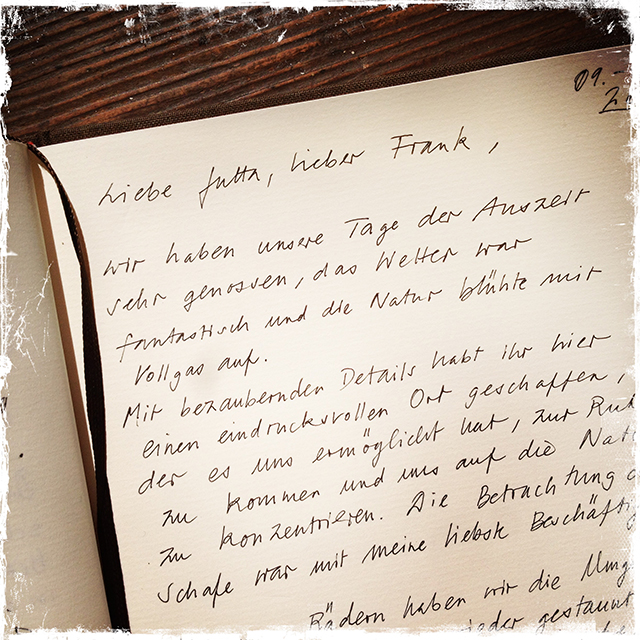 09.-
Liebe Jutta, lieber Frank,
wir haben unsere Tage der Auszeit
sehr genossen, das Wetter war
fantastisch und die Natur blühte mit
Vollgas auf.
Mit bezaubernden Details habt ihr hier
einen eindrucksvollen Ort geschaffen,
der es uns ermöglicht hat, zur Ruh
zu kommen und uns auf die Nat
zu konzentrieren. Die Betrachtung
Schafe war mit meine liebste Beschäftig
Rädern haben wir die Umg
ieder gestaunt